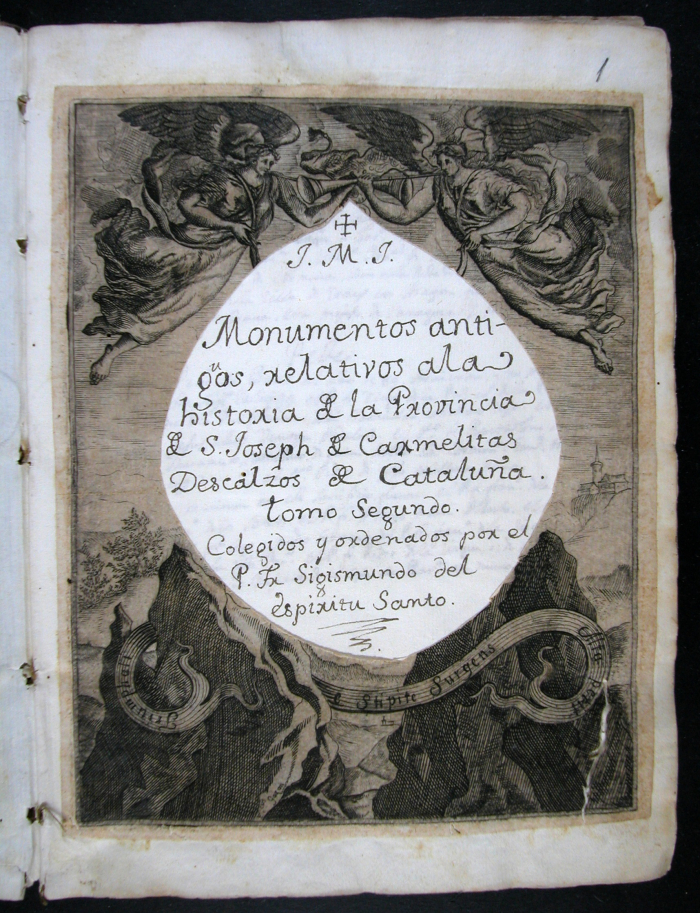 1
J. M. J.
Monumentos anti-
guos, relativos ala
historia de la Provincia
de S. Joseph de Carmelitas
Descalzos de Cataluña.
tomo Segundo.
Colegidos y ordenados por el
P. Fr Sigismundo del
espiritu Santo.
Stipite Surgens